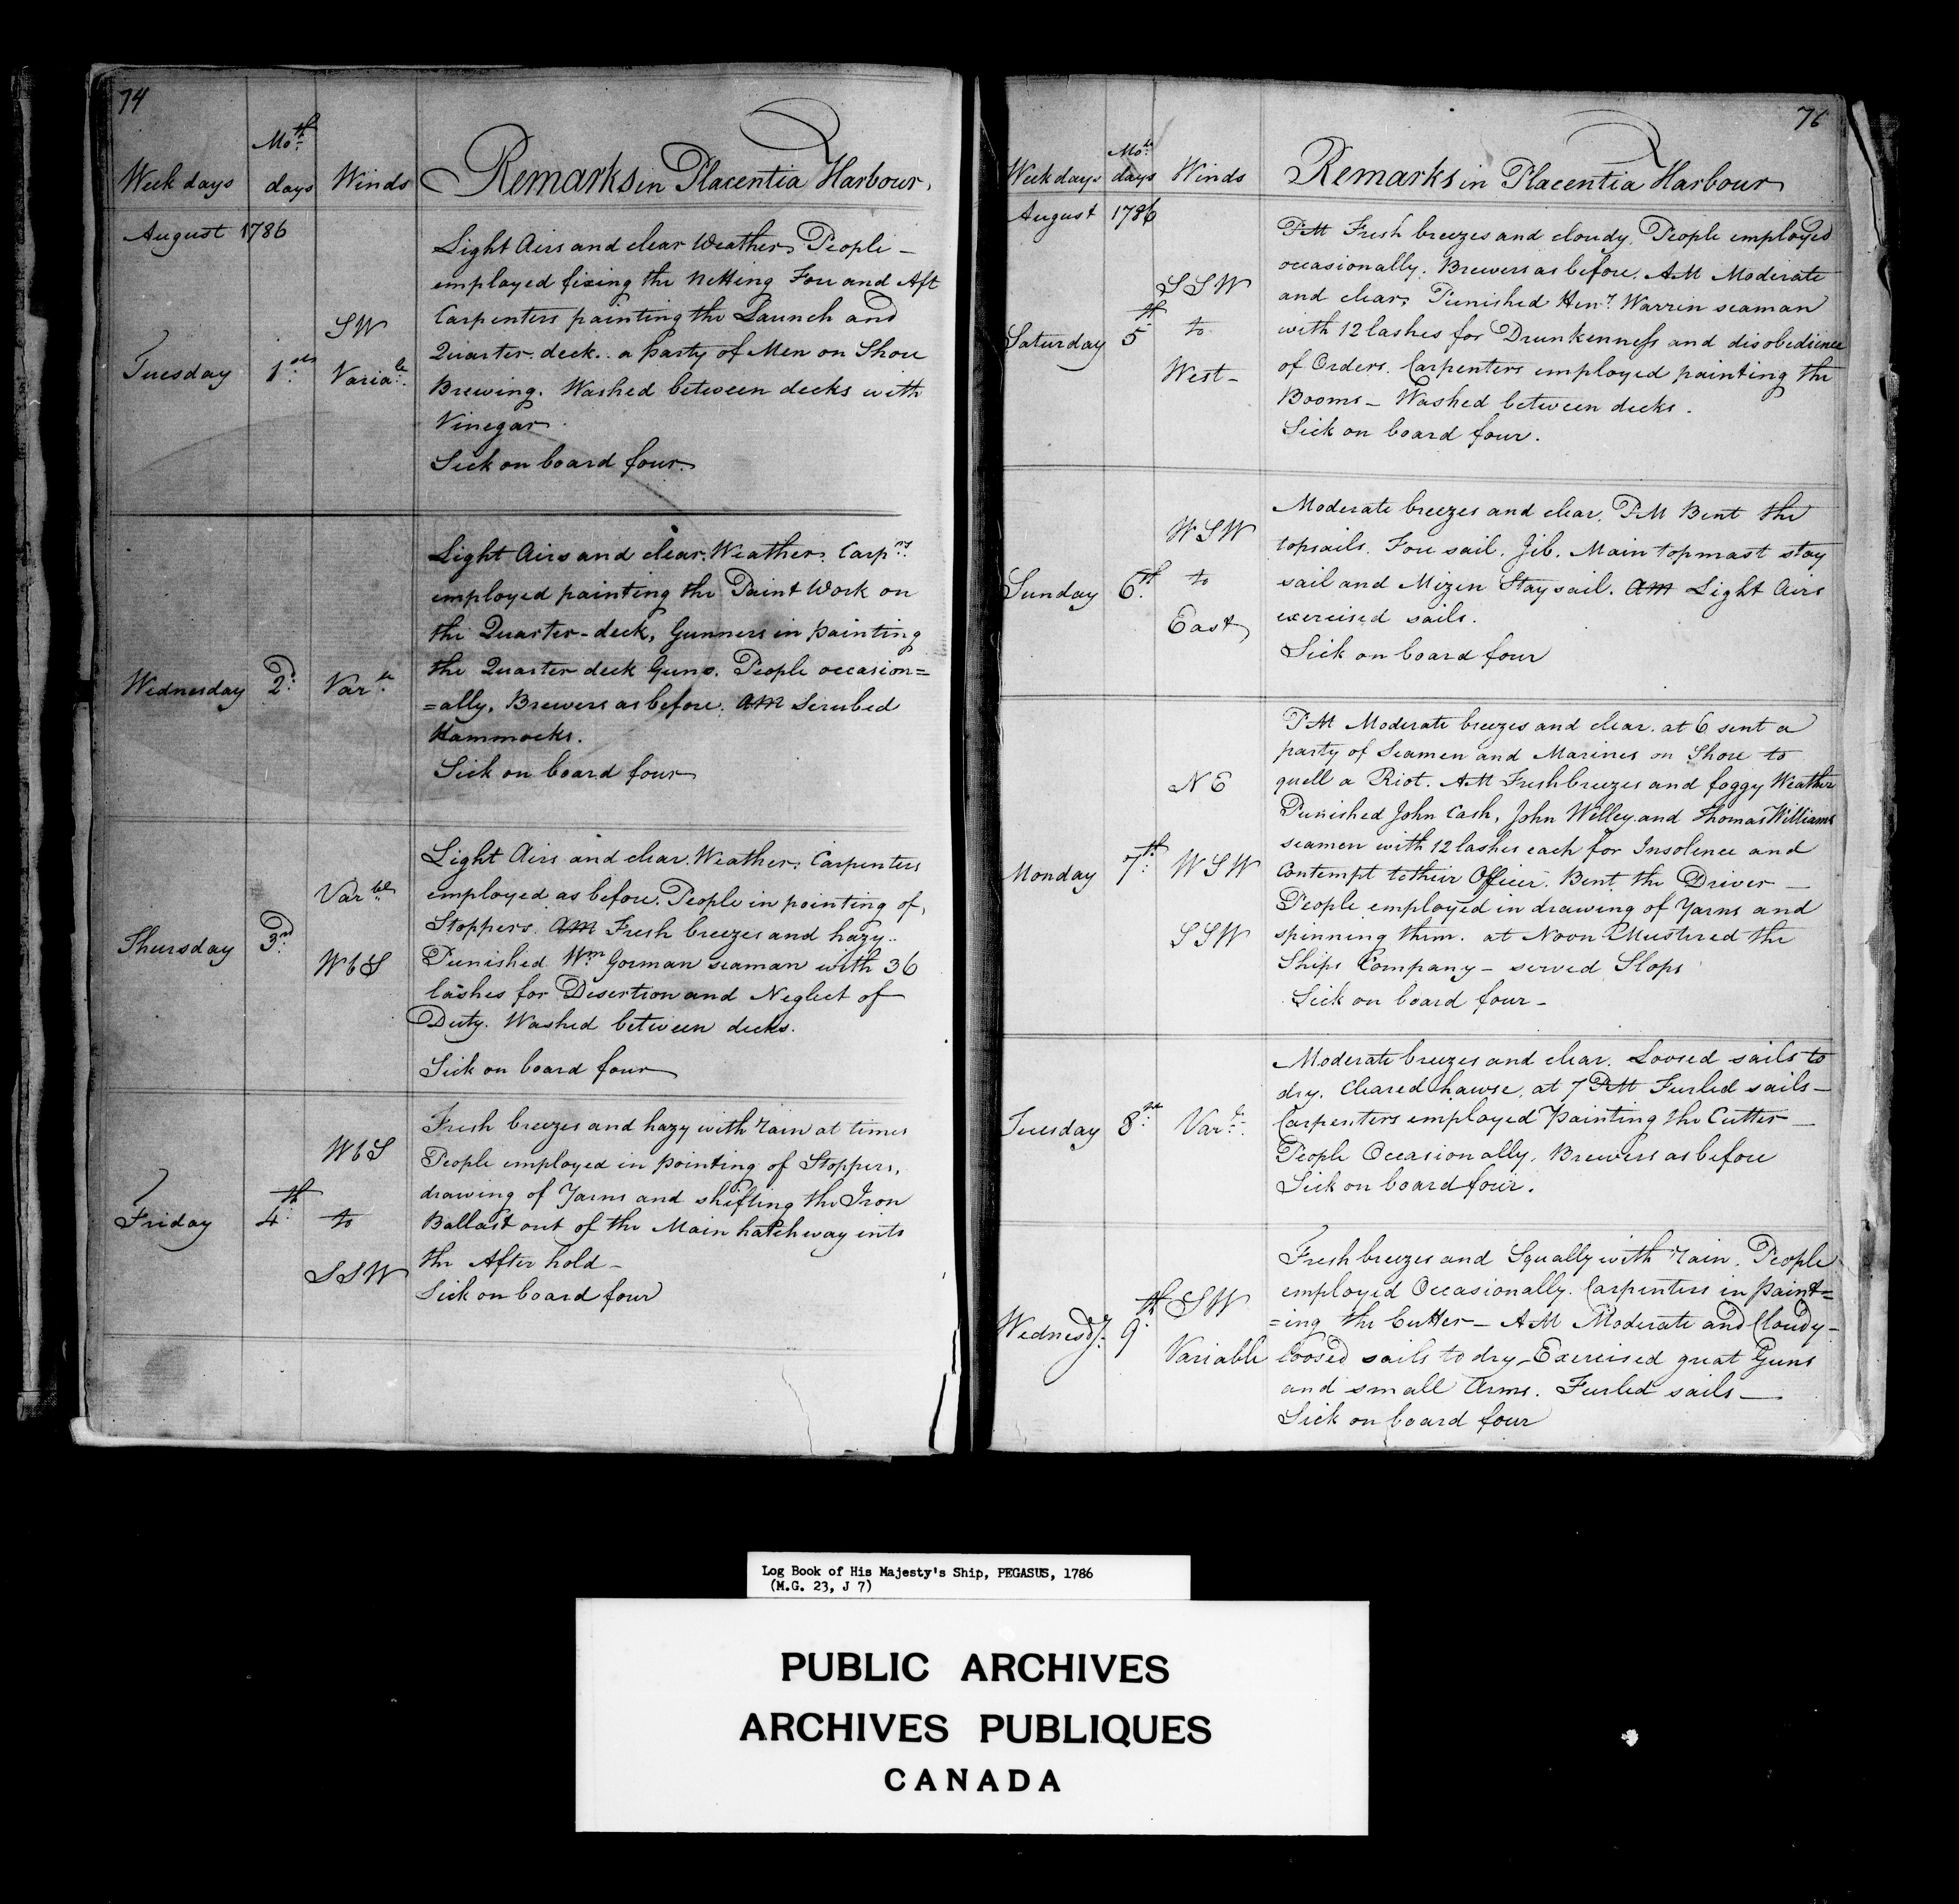 74
Moth
Week days days Winds Remarks in Placentia Harbour.
August 1786
Light Airs and clear Weather, People -
employed fixing the Netting Fore and Aft
Carpenters painting the Launch and
SW
Quarter-deck.. a Party of Men on Shore
Tuesday 1st Variale
Brewing. Washed between decks with
Vinegar.
Sick on board four.
Light Airs and clear Weather. Carprs
employed painting the Paint Work on
the Quarter-deck, Gunners in painting
the Quarter deck Guns. People occasion=
Wednesday 2d Varle
=ally. Brewers as before. AM Scrubed
Hammocks.
Sick on board four
Light Airs and clear Weather. Carpenters
employed as before. People in pointing of
Varble
Stoppers. AM Fresh breezes and hazy..
Thursday 3rd
Punished Wm Gorman seaman with 36
WbS
lashes for Desertion and Neglect of
Duty. Washed between decks.
Sick on board four
Fresh breezes and hazy with rain at times
WbS
People employed in pointing of Stoppers,
drawing of Yarns and shifting the Iron
Friday 4th to
Ballast out of the Main hatchway into
the After hold -
SSW
Sick on board four
76
Moth
Week days days Winds Remarks in Placentia Harbour
August 1786
PM Fresh breezes and cloudy. People employed
occasionally. Brewers as before. AM Moderate
SSW
and clear, Punished Heny Warrin seaman
Saturday 5th to
with 12 lashes for Drunkenness and disobedience
of Orders. Carpenters employed painting the
West -
Booms - Washed between decks.
Sick on board four.
Moderate breezes and clear. PM Bent the
WSW
topsails. Fore sail. Jib. Main topmast stay
Sunday 6th to
sail and Mizen Stay sail. AM Light Airs
East
exercised sails.
Sick on board four
PM Moderate breezes and clear. at 6 sent a
party of Seamen and Marines on Shore to
NE
quell a Riot. AM Fresh breezes and foggy Weather
Punished John Cash, John Welley and Thomas Williams
seamen with 12 lashes each for Insolence and
Monday 7th WSW
Contempt to their Officer. Bent the Driver -
People employed in drawing of Yarns and
SSW
spinning them. at Noon Mustered the
Ships Company - served Slops
Sick on board four -
Moderate breezes and clear. Loosed sails to
dry. Cleared hawse, at 7 PM Furled sails -
Tuesday 8th Varle
Carpenters employed Painting the Cutter -
People Occasionally. Brewers as before
Sick on board four.
Fresh breezes and Squally with rain. People
employed Occasionally. Carpenters in Paint=
SW
=ing the Cutter - AM Moderate and Cloudy -
Wednesdy 9th
Variable
loosed sails to dry - Exercised great Guns
and small Arms. Furled sails -
Sick on board four
Log Book of His Majesty's Ship, PEGASUS, 1786
(M.G. 23, J 7)
PUBLIC ARCHIVES
ARCHIVES PUBLIQUES
CANADA